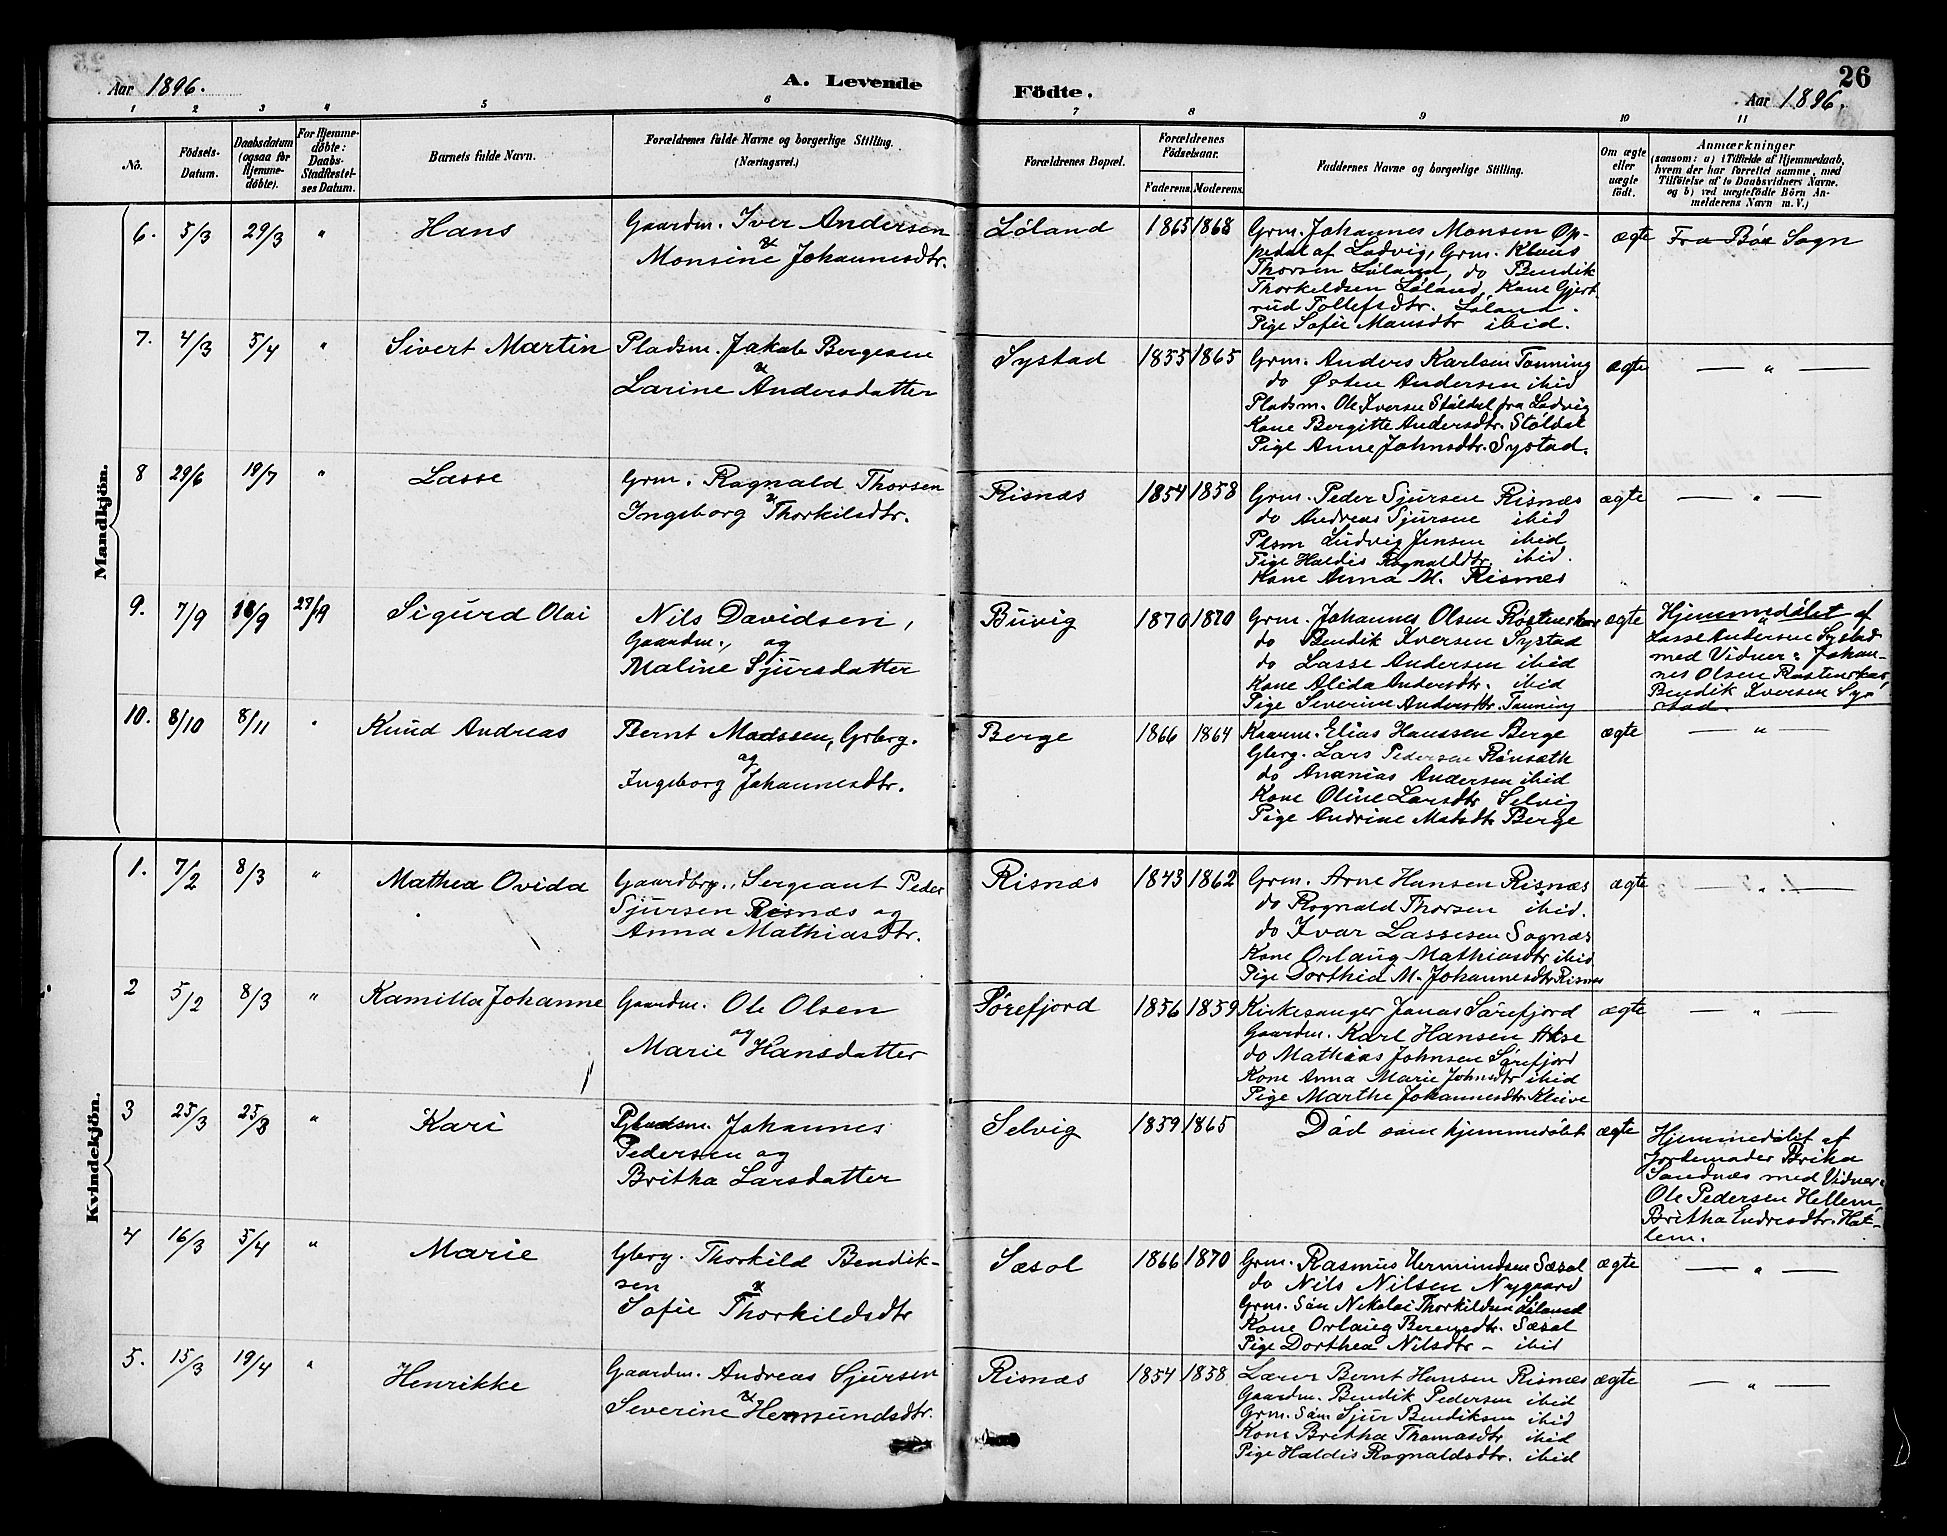 26
Aar 1896. A. Levende Födte. Aar 1896.
1 2 3 4 5 6 7 8 9 10 11
No. Födsels-Datum. Daabsdatum (ogsaa for Hjemme-döbte). For Hjemme-döbte: Daabs-Stadfæstel-ses Datum. Barnets fulde Navn. Forældrenes fulde Navne og borgerlige Stilling. (Næringsvei.) Forældrenes Bopæl. Forældrenes Födselsaar. Faderens. Moderens. Faddernes Navne og borgerlige Stilling. Om ægte eller uægte født. Anmærkninger
(saasom: a) i Tilfælde af Hjemmedaab,
hvem der har forrettet samme, med
Tilföielse af to Daabsvidners Navne.
og b) ved uægtefödte Börn An-
melderens Navn m. V.)
Mandkjön.
6. 5/3 29/3 " Hans Gaardm. Iver Andersen
& Monsine Johannesdtr.
Løland 1865 1868 Grm. Johannes Monsen Op-
pedal af Ladvig, Grm. Klaus
Thorsen Løland, do Bendik
Thorkildsen Løland, Kone Gjert
rud Tollefsdtr. Løland.
Pige Sofie Mansdtr ibid.
ægte Fra Bøe Sogn
7. 4/3 5/4 " Sivert Martin Pladsm. Jakob Bergesen
& Larine Andersdatter
Systad 1855 1865 Grm. Anders Karlsen Tonning
do Østen Andersen ibid
Pladsm. Ole Iversen Støldal fra Ladvig
Kone Bergitte Andersdtr. Støldal
Pige Anne Johnsdtr. Systad.
ægte — " —
8 29/6 19/7 " Lasse Grm. Ragnald Thorsen
& Ingeborg Thorkilsdtr.
Risnæs 1854 1858 Grm. Peder Sjursen Risnæs
do Andreas Sjursen ibid
Plsm Ludvig Jensen ibid
Pige Haldis Ragnaldsdtr. ibid.
Kone Anna M. Risnæs
ægte — " —
9. 7/9 /9 27/9 Sigurd Olai Nils Davidsen,
Gaardm., og
Maline Sjursdatter
Buvig 1870 1870 Grm. Johannes Olsen
do Bendik Iversen Systad
do Lasse Andersen ibid
Kone Alida Andersdtr. ibid
Pige Severine Andersdtr. Tonning
ægte Hjemmedøbt af
Lasse Andersen Systad
med Vidner: Johan-
nes Olsen
Bendik Iversen Sy-
stad.
10. 8/10 8/11 " Knud Andreas Bernt Madssen, Grbrg.
og
Ingeborg Johannesdtr.
Berge 1866 1864 Elias Hanssen Berge
Gbrg. Lars Pedersen Rønsæth
do Ananias Andersen ibid
Kone Oline Larsdtr Selvig
Pige Andrine Matsdtr Berge
ægte — " —
Kvindekjön.
1. 7/2 8/3 " Mathea Ovida Gaardbrg., Sergeant Peder
Sjursen Risnæs og
Anna Mathiasdtr.
Risnæs 1843 1862 Grm. Arne Hansen Risnæs
do Ragnald Thorsen ibid.
do Ivar Lassesen Sognæs
Kone Orlaug Mathiasdtr ibid
Pige Dorthea M. Johannesdtr Risnæs
ægte — " —
2 5/2 8/3 " Kamilla Johanne Gaardm. Ole Olsen
og
Marie Hansdatter
Sørefjord 1856 1859 Kirkesanger Jonas Sørefjord
Gaardm. Karl Hansen
do Mathias Johnsen Sørefjord
Kone Anna Marie Johnsdtr ibid
Pige Marthe Johannesdtr Kleive
ægte — " —
3 25/3 25/3 " Kari Pladsm. Johannes
Pedersen og
Britha Larsdatter
Selvig 1859 1865 Død som hjemmedøbt ægte Hjemmedøbt af
Jordemoder Brika
Sandnæs med Vidner:
Ole Pedersen Hellem,
Britha Endresdtr. Hat-
lem.
4 16/3 5/4 " Marie Gbrg. Thorkild Bendik-
sen
& Sofie Thorkildsdtr
Sæsol 1866 1870 Grm. Rasmus Hermundsen Sæsol
do Nils Nilsen Nygaard
Grm. Søn Nikolai Thorkildsen Løland
Kone Orlaug Berensdtr. Sæsol
Pige Dorthea Nilsdtr – ibid
ægte — " —
5. 15/3 19/4 " Henrikke Gaardm. Andreas Sjursen
& Severine Hermundsdtr.
Risnæs 1854 1858 Lærer Bernt Hansen Risnæs
Gaardm. Bendik Pedersen ibid
Grm. Søn Sjur Bendiksen ibid
Kone Britha Thomasdtr ibid
Pige Haldis Ragnaldsdtr. ibid
ægte — " —